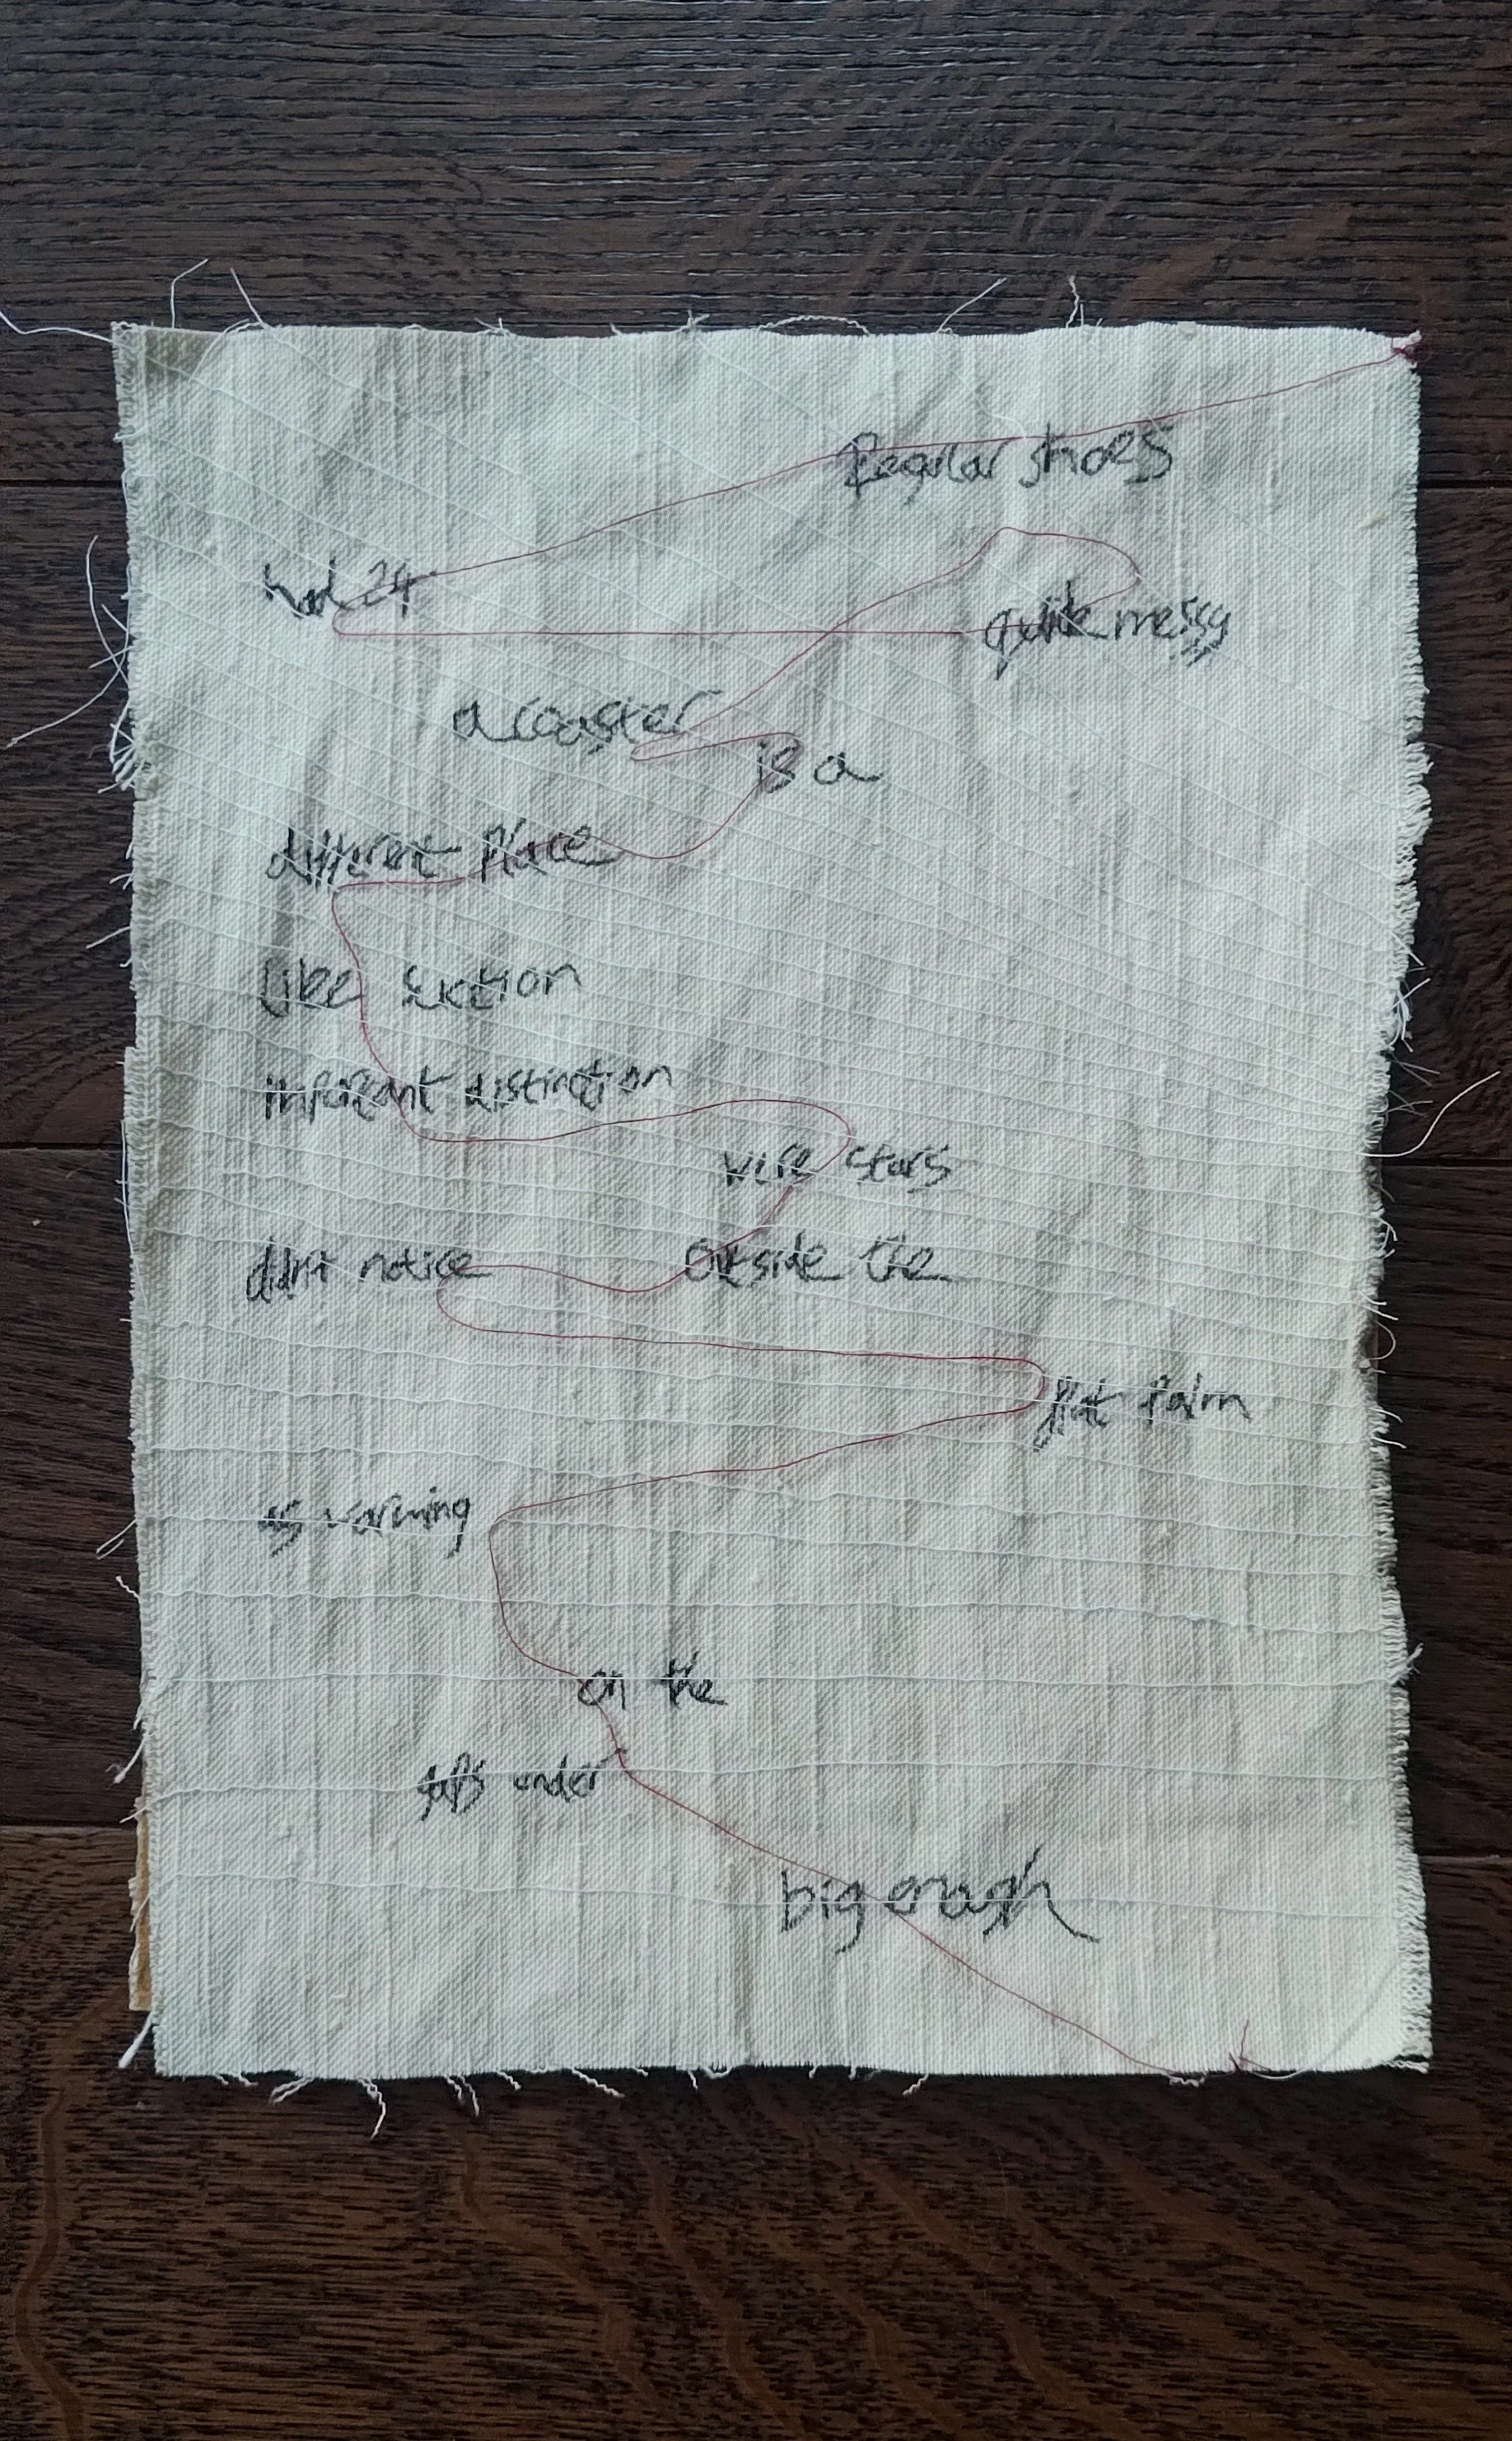 Regular shoes
had 24
quite messy
a coaster
is a
different place
like suction
important distinction
wire stars
didn't notice outside the
flat palm
as warming
on the
gaps under
big enough